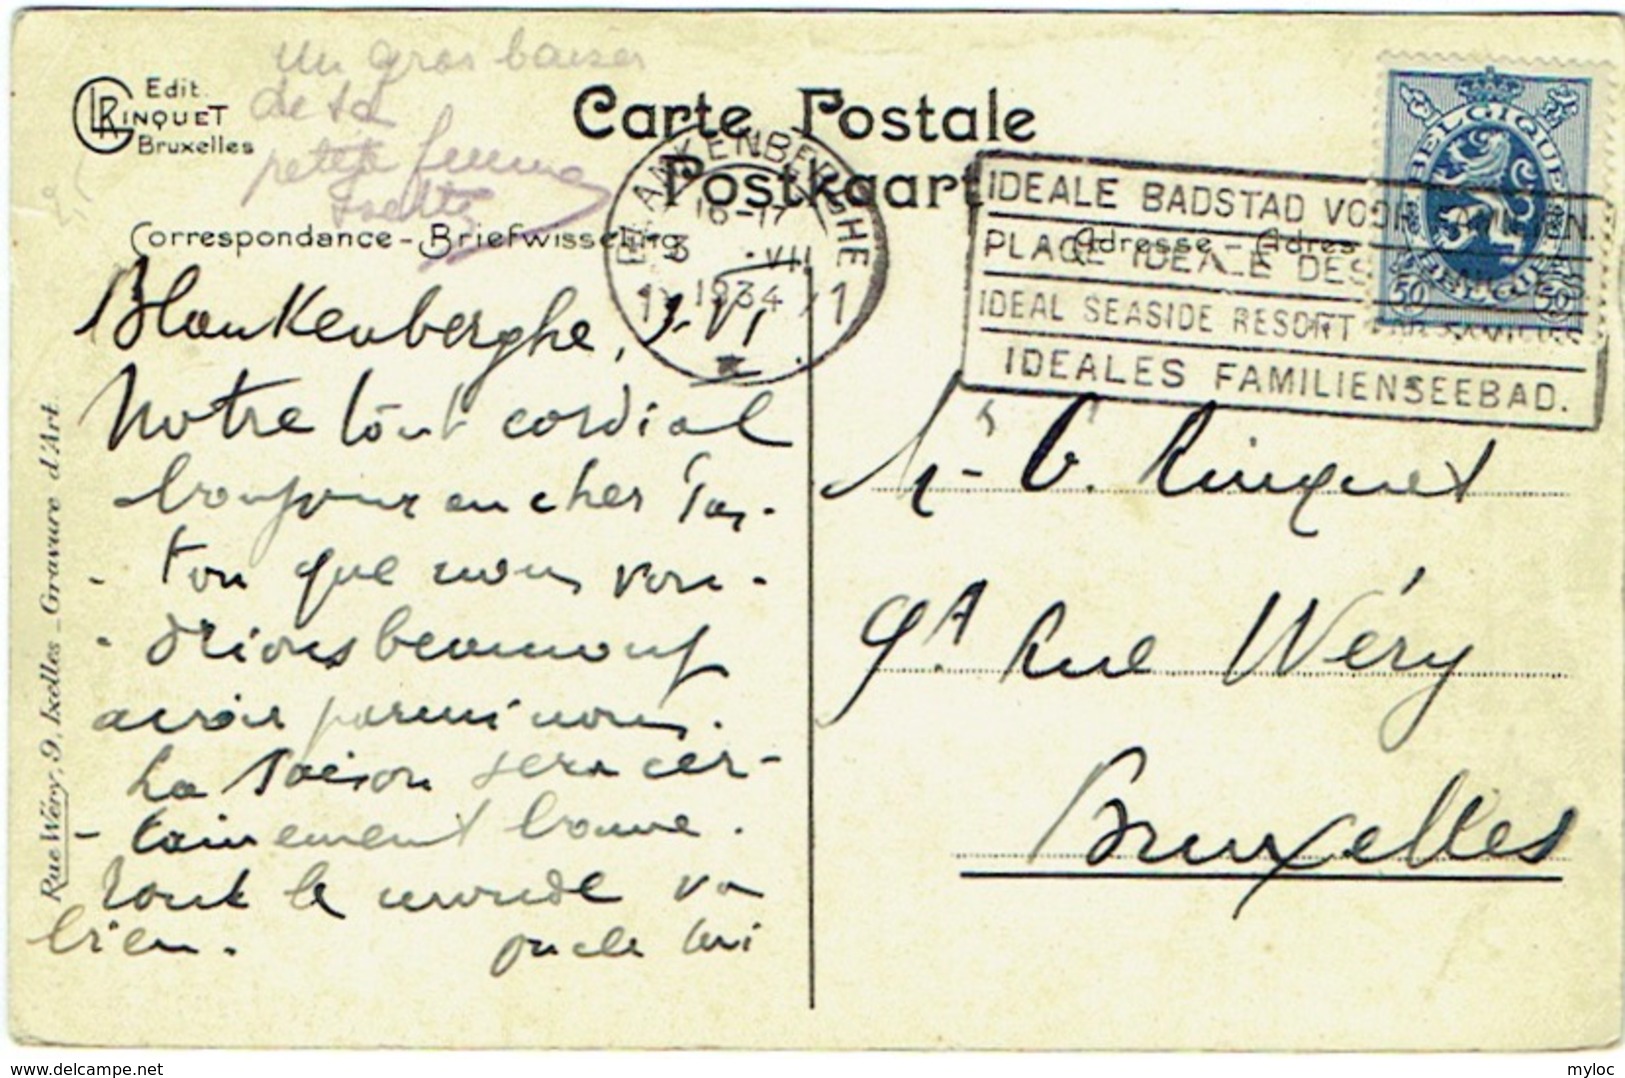 un gros baiser
de ta
petite femme
Edit.
RINQUET
Bruxelles
Carte Postale
Postkaart
BLANKENBERGHE
16-17
3 VII
1934
1 1
IDEALE BADSTAD VOOR FAMILIEN.
PLAGE IDEALE DES
IDEAL SEASIDE RESORT
IDEALES FAMILIENSEEBAD.
BELGIQUE
BELGIE
50 50
Correspondance - Briefwisseling
Adresse - Adres
Blankenberghe, 3-VII
Notre tout cordial
bonjour au cher Ton-
ton que nous vou-
- drions beaucoup
avoir parmi nous.
La saison sera cer-
- tainement bonne.
Tout le monde va
bien. oncle
Mr G. Rinquet
9A Rue Wéry
Bruxelles
Rue Wéry, 9, Ixelles _ Gravure d'Art.
delcampe.net
myloc